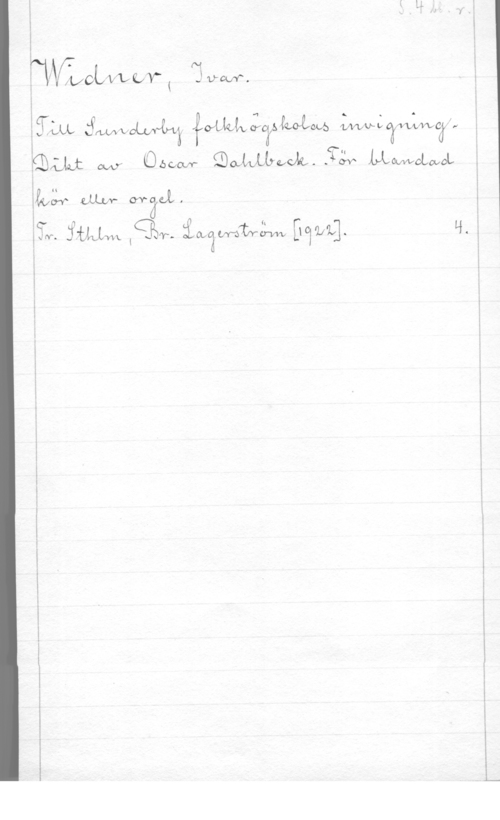 S. 4 bl. v.
Widner, Ivar.
Till Sunderby folkhögskolas invigning.
Dikt av Oscar Dahlbeck. För blandad
kör eller orgel.
Tr. Sthlm, Br. Lagerström [1922]. 4.